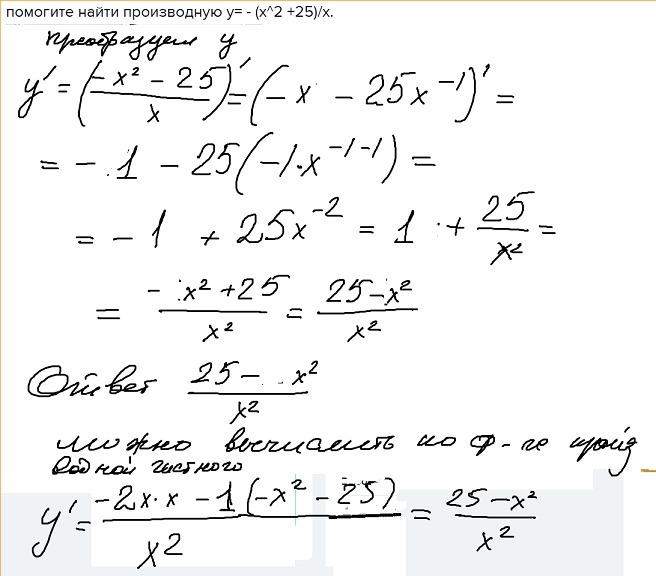 помогите найти производную y= - (x^2 +25)/x.
преобразуем y
y' = ((-x² - 25)/x)' = (-x - 25x⁻¹)' =
= - 1 - 25(-1·x⁻¹⁻¹) =
= - 1 + 25x⁻² = 1 + 25/x² =
= (- x² + 25)/x² = (25 - x²)/x²
Ответ (25 - x²)/x²
можно вычислить по ф-ле произ
водной частного
y' = (-2x·x - 1(-x² - 25))/x² = (25 - x²)/x²